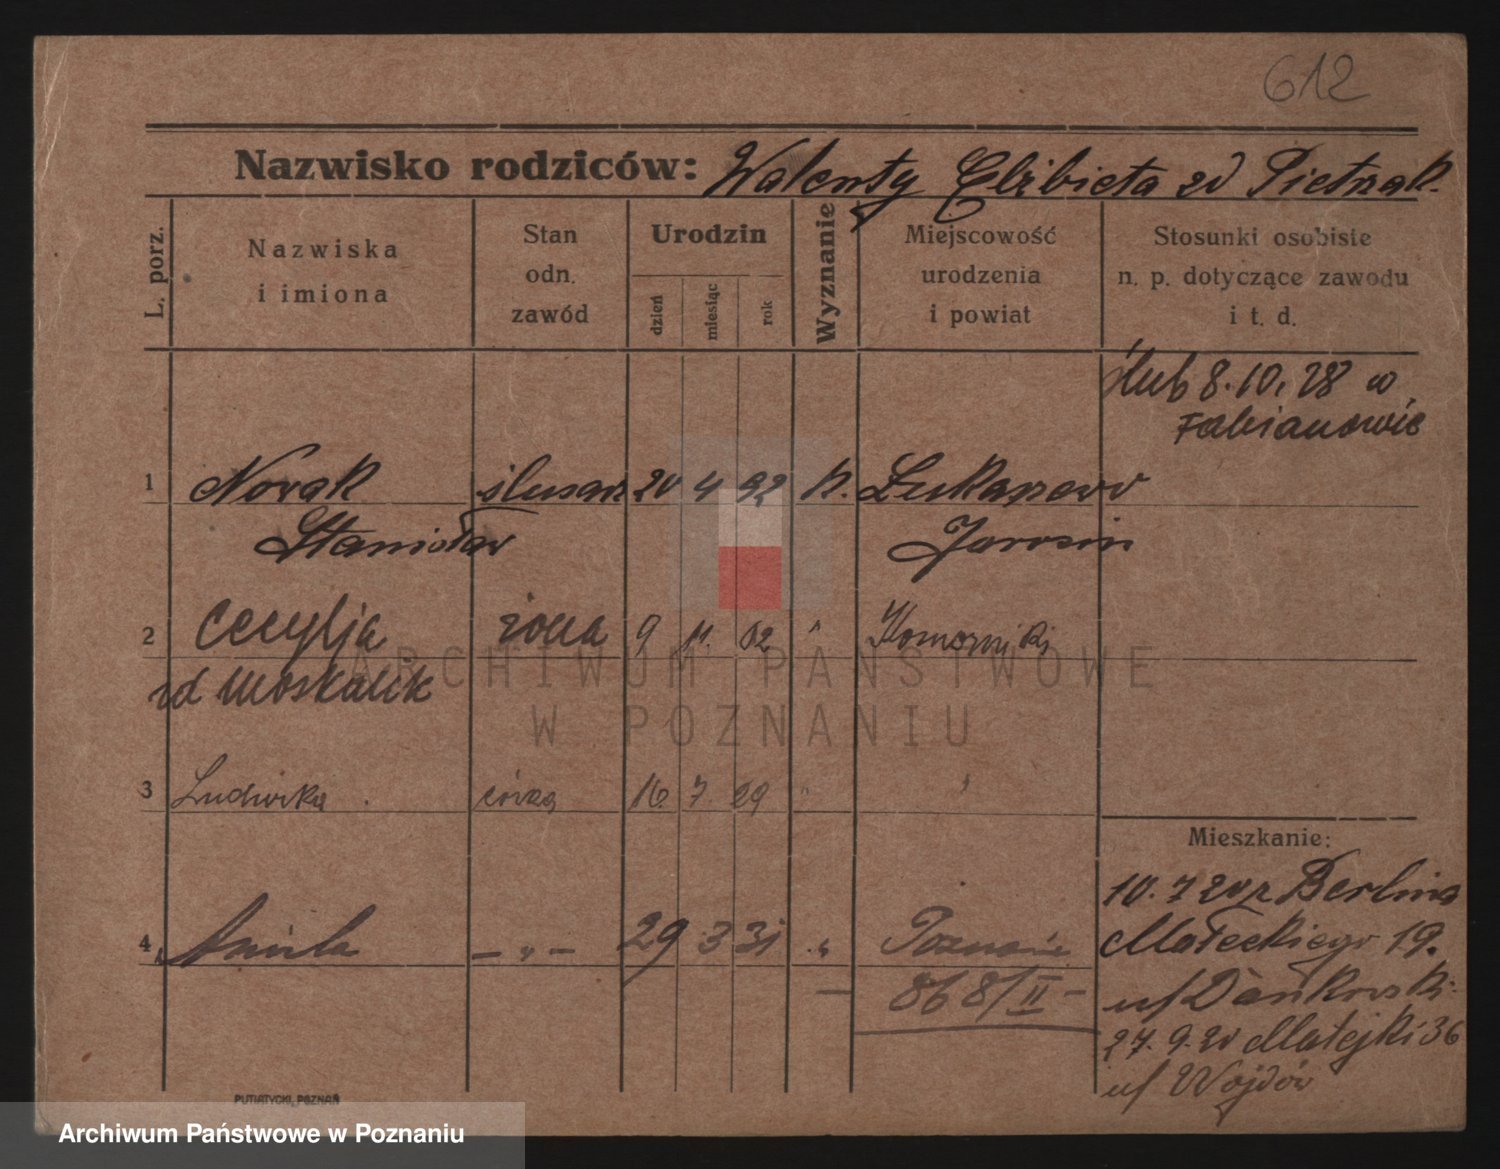 612
Nazwisko rodziców: Walenty Elżbieta zd Pietrzak.
L. porz.
Nazwiska i imiona
Stan odn. zawód
Urodzin
dzień
miesiąc
rok
Wyznanie
Miejscowość urodzenia i powiat
Stosunki osobiste n. p. dotyczące zawodu i t. d.
ślub 8.10.28 w
Fabianowie
1 Nowak ślusarz 20 4 92 k.
Stanisław Jarocin
2 Cecylja żona 9 11. 02 " Komorniki
zd Moskalik
3 Ludwika córka 16. 7 29 " "
Mieszkanie:
10.7 20 z Berlina
4 29 3 31 " Poznanie Małeckiego 19.
868/II - u/ Dankowski
27.9.20 Matejki 36
u/ Wojdów
PUTIATYCKI, POZNAŃ
ARCHIWUM PAŃSTWOWE
W POZNANIU
Archiwum Państwowe w Poznaniu